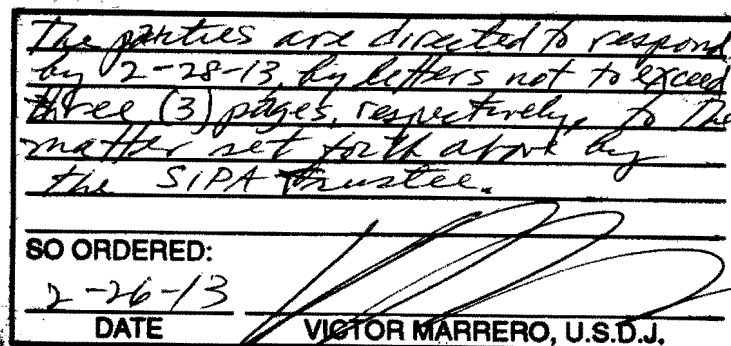 The parties are directed to respond
by 2-28-13, by letters not to exceed
three (3) pages, respectively, to the
matter set forth above by
the SIPA Trustee.
SO ORDERED:
2-26-13
DATE VICTOR MARRERO, U.S.D.J.